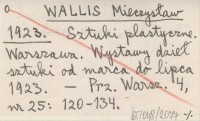 WALLIS Mieczysław
1923. Sztuki plastyczne.
Warszawa. Wystawy dzieł
sztuki od marca do lipca
1923. — Prz. Warsz. 4,
nr 25: 120-134.